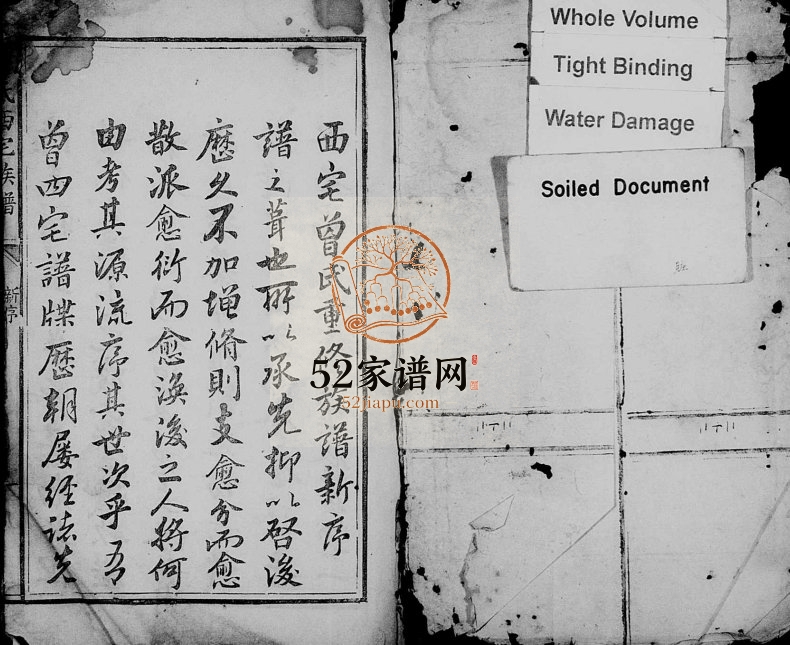 Whole Volume
Tight Binding
Water Damage
Soiled Document
西宅曾氏重修族譜新序
譜之葺也所以承先抑以啓後
歷久不加增脩則支愈分而愈
散派愈衍而愈渙後之人將何
由考其源流序其世次乎吾
曾西宅譜牒歷朝屡经諸先
氏西宅族譜
新序
52家谱网
52jiapu.com